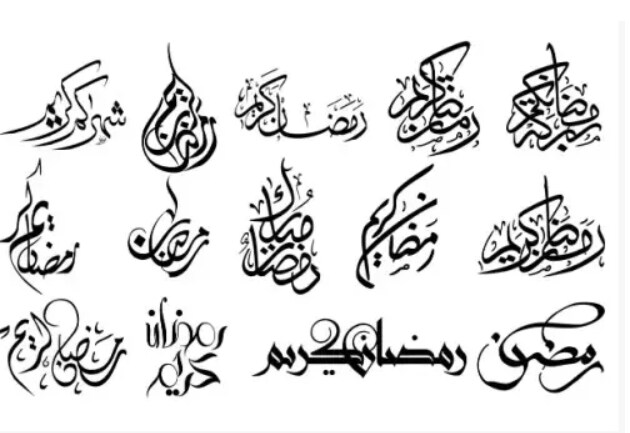 رمضان كريم رمضان كريم رَمَضَان كَريم رمضان كريم شهركم كريم
رمضان كريم رمضان كريم رمضان مُبارك رمضان رمضان كريم
رمضان رمضان كريم رمضان كريم رمضان كريم